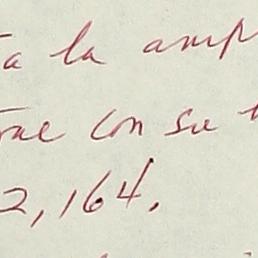 ta la amp
rae con su
2,164.